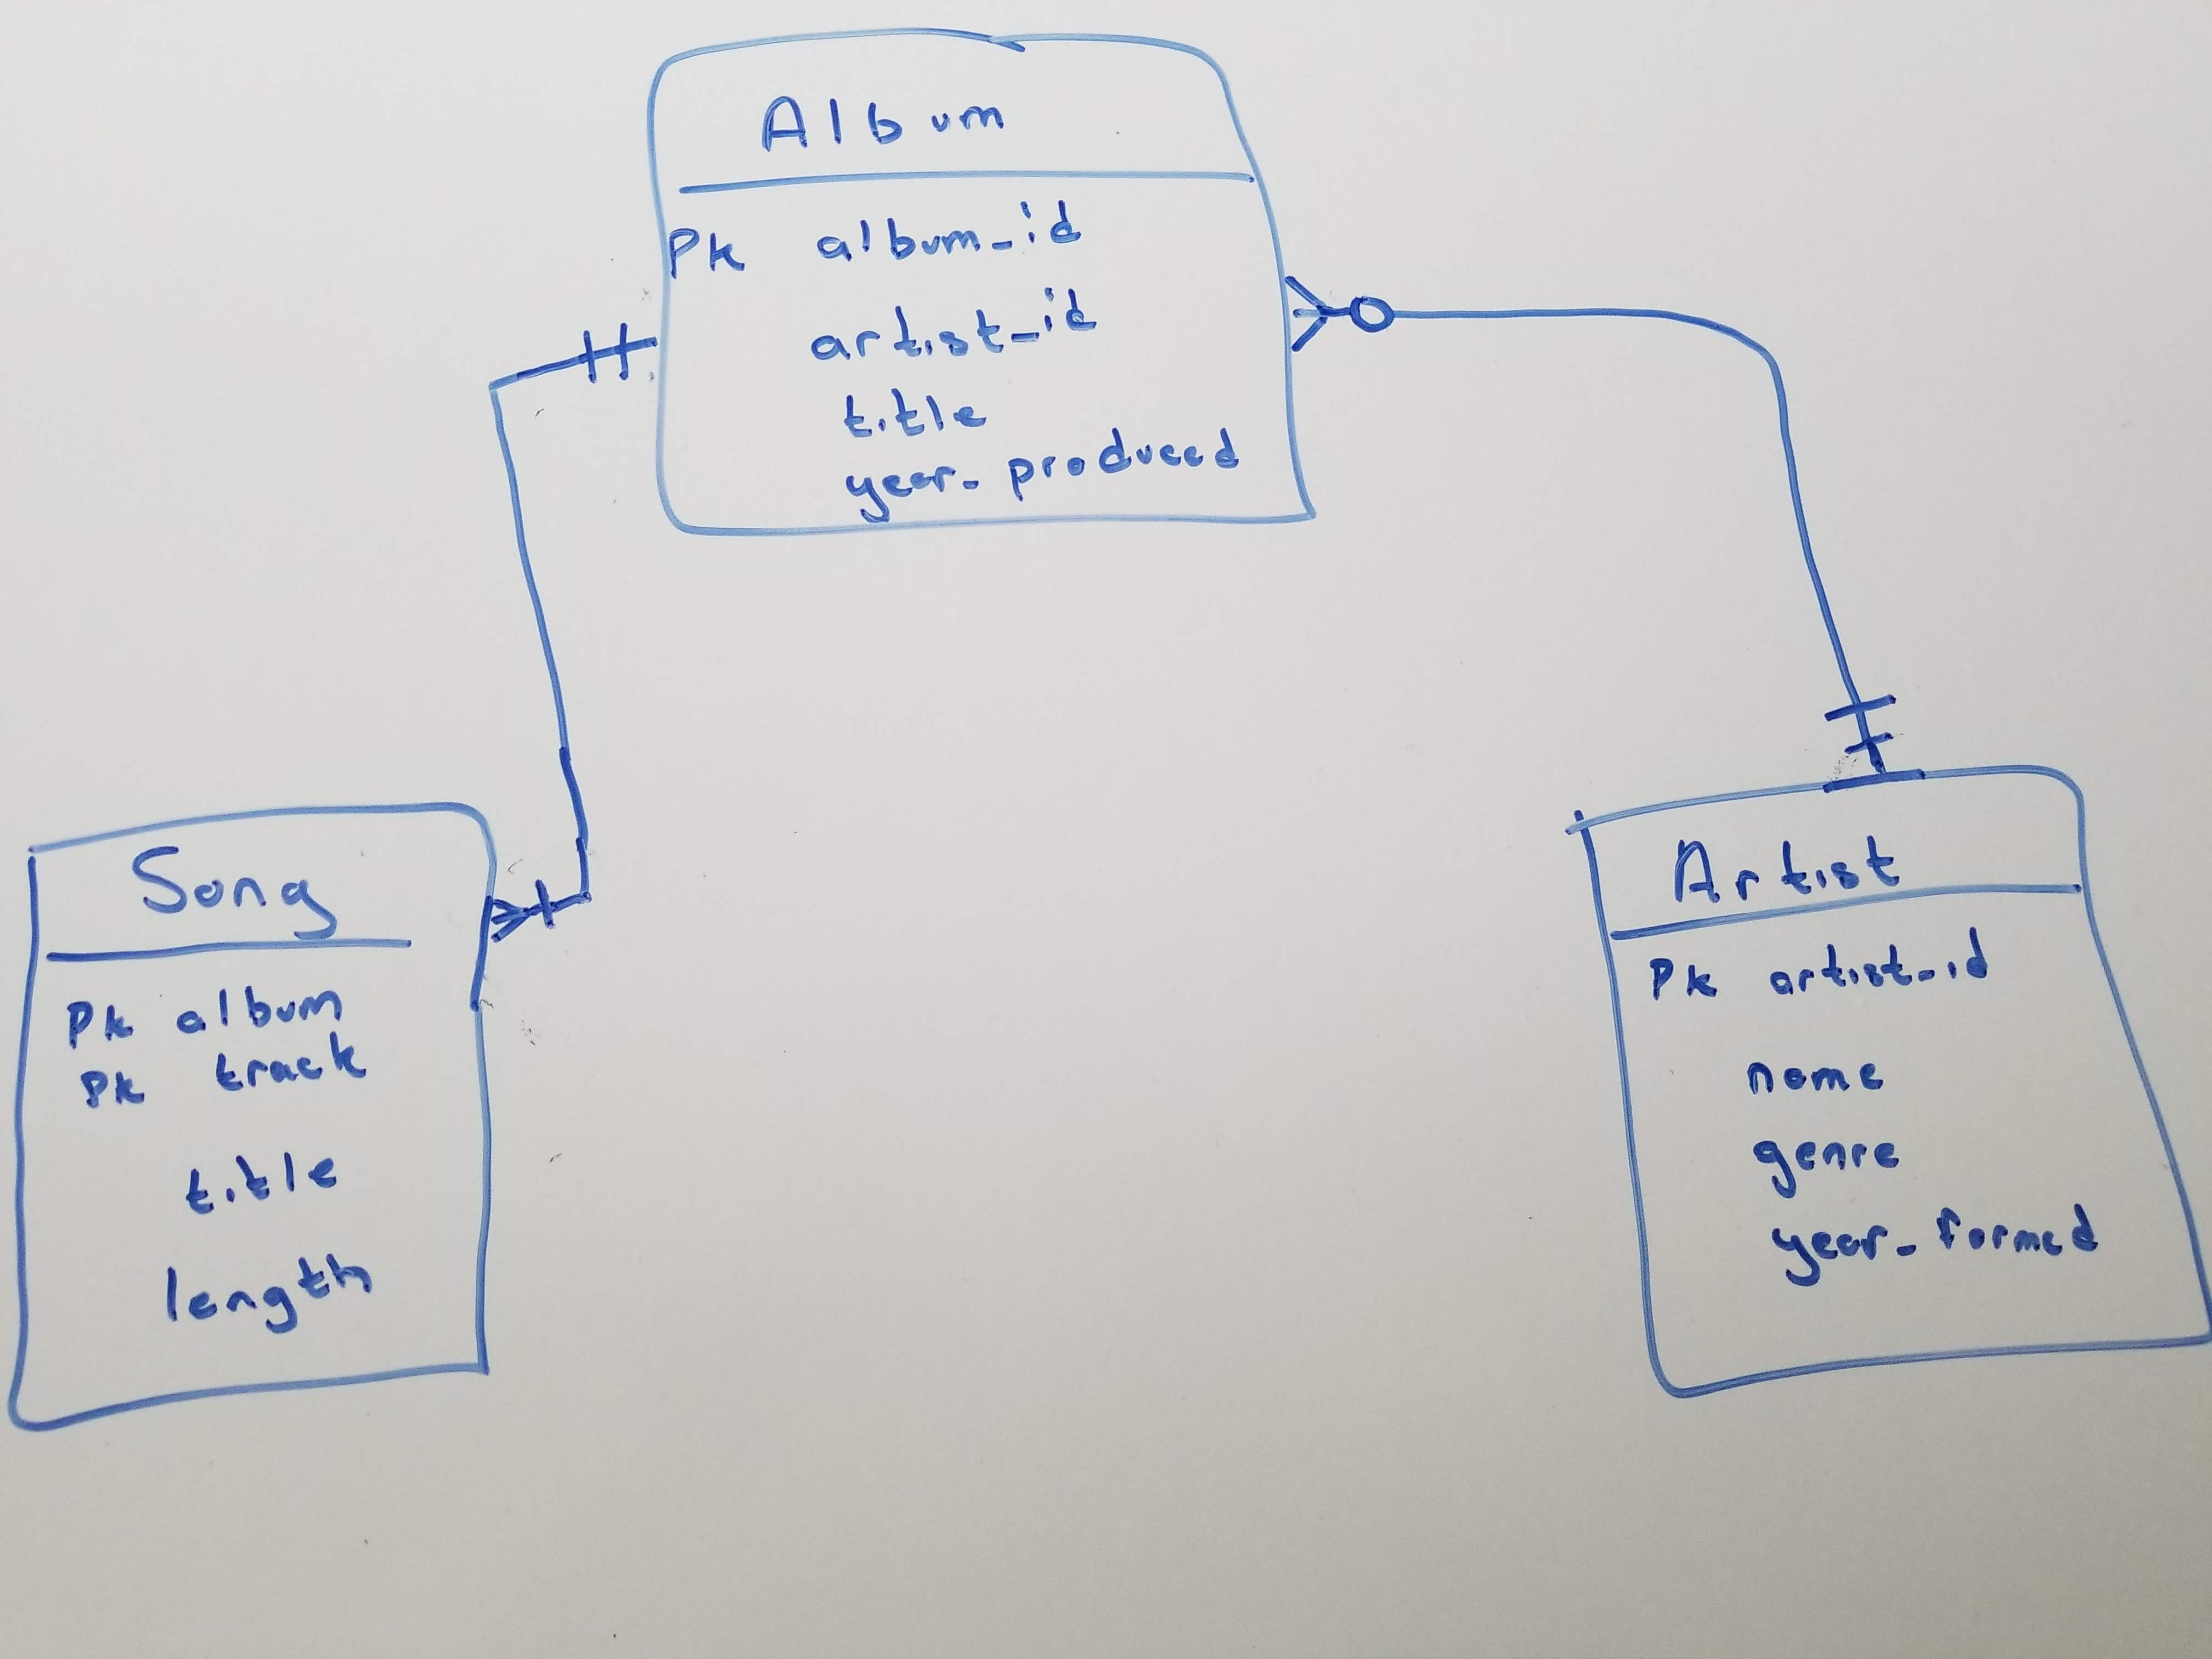 Album
Pk album_id
artist_id
title
year_produced
Song
Pk album
Pk track
title
length
Artist
Pk artist_id
name
genre
year_formed